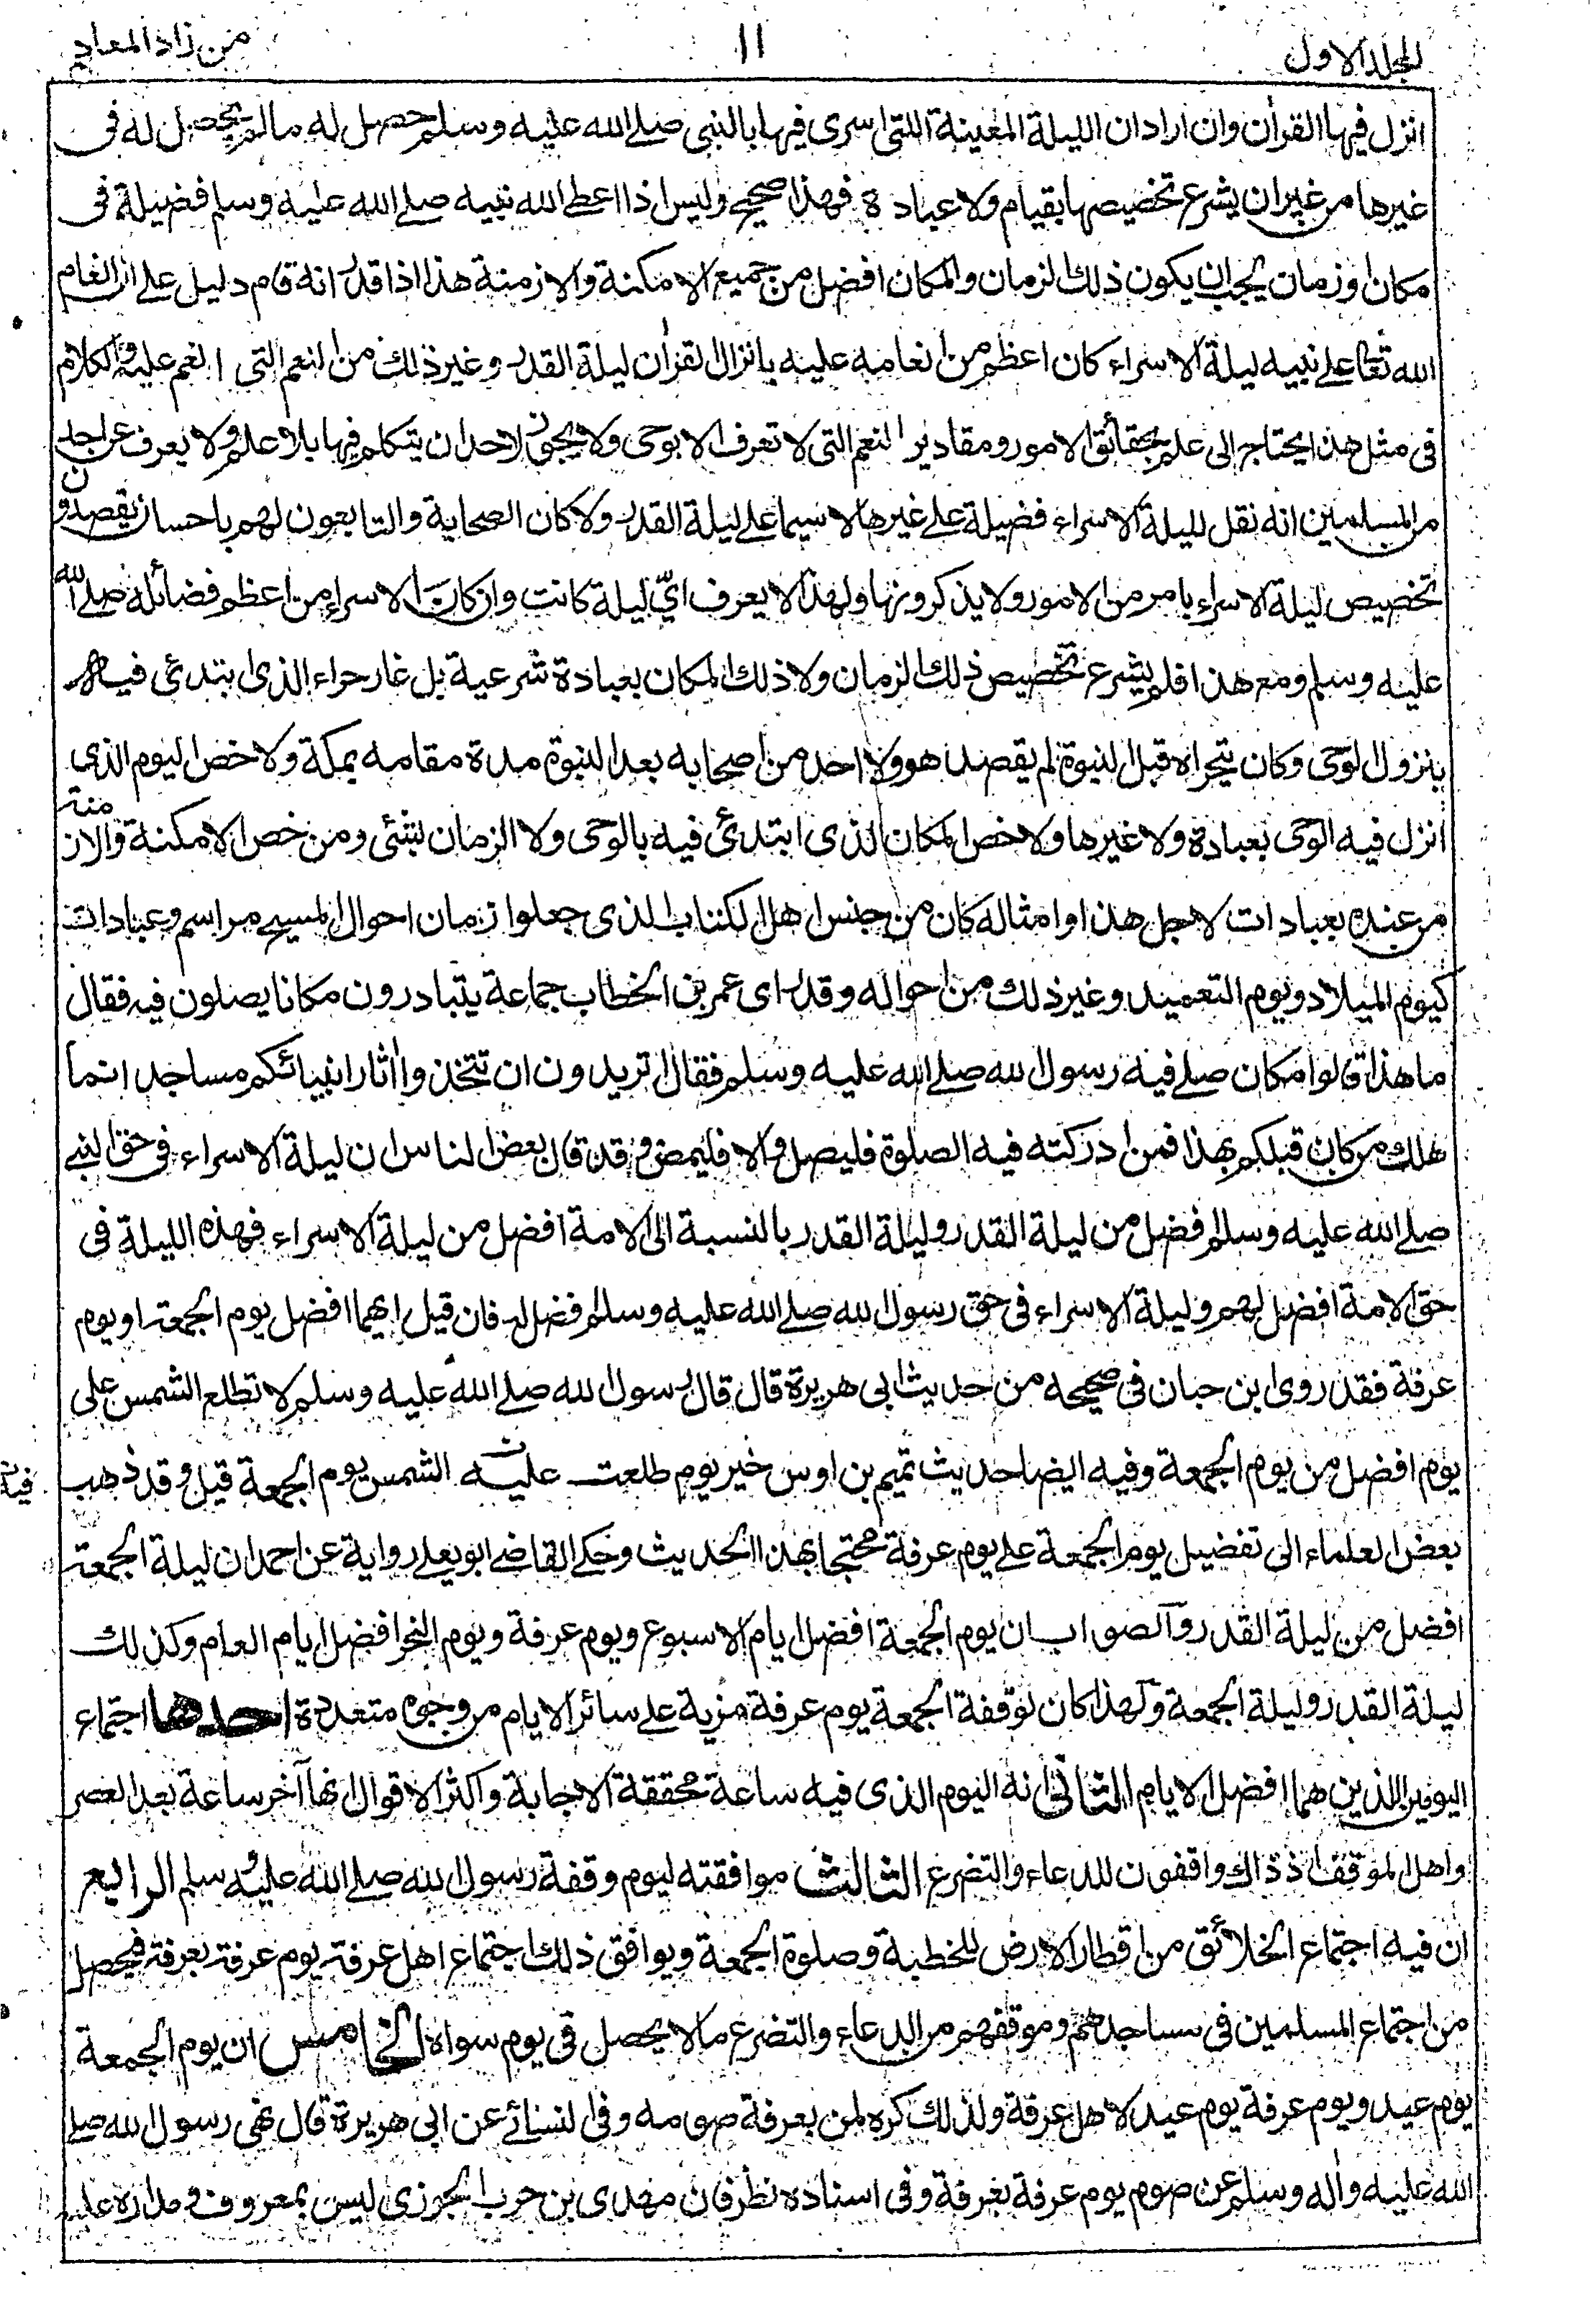 المجلد الاول
١١
من زاد المعاد
انزل فيها القرأن وان اراد ان الليلة المعينة اللتى اسرى فيها بالنبى صلے الله عليه وسلم حصل له ما لم يحصل له فى
غيرها من غير ان يشرع تخصيصها بقيام ولا عبادة فهذا صحيح وليس اذا اعطے الله نبيه صلے الله عليه وسلم فضيلة فى
مكان او زمان يجب ان يكون ذلك الزمان والمكان افضل من جميع الامكنة والازمنة هذا اذا قدر انه قام دليل على ان انعام
الله تعالى على نبيه ليلة الاسراء كان اعظم من انعامه عليه بانزال القرأن ليلة القدر وغير ذلك من النعم التى انعم عليه والكلام
فى مثل هذا يحتاج الى علم بحقائق الامور ومقادير النعم التى لا تعرف الا بوحى ولا يجوز لاحد ان يتكلم فيها بلا علم ولا يعرف عن احد
من المسلمين انه نقل لليلة الاسراء فضيلة على غيرها لا سيما على ليلة القدر ولا كان الصحابة والتابعون لهم باحسان يقصدون
تخصيص ليلة الاسراء بامر من الامور ولا يذكرونها ولهذا لا يعرف اىّ ليلة كانت وان كان الاسراء من اعظم فضائله صلے الله
عليه وسلم ومع هذا فلم يشرع تخصيص ذلك الزمان ولا ذلك المكان بعبادة شرعية بل غار حراء الذى ابتدئ فيه
بنزول الوحى وكان يتحراه قبل النبوة لم يقصده هو ولا احد من اصحابه بعد النبوة مدة مقامه بمكة ولا خص اليوم الذى
انزل فيه الوحى بعبادة ولا غيرها ولا خص المكان الذى ابتدئ فيه بالوحى ولا الزمان بشئ ومن خص الامكنة والازمنة
من عنده بعبادات لاجل هذا او امثاله كان من جنس اهل الكتاب الذى جعلوا زمان احوال المسيح مراسم وعبادات
كيوم الميلاد ويوم التعميد وغير ذلك من احواله وقد راى عمر بن الخطاب جماعة يتبادرون مكانا يصلون فيه فقال
ما هذا قالوا مكان صلے فيه رسول الله صلے الله عليه وسلم فقال اتريدون ان تتخذوا اثار انبيائكم مساجد انما
هلك من كان قبلكم بهذا فمن ادركته فيه الصلوة فليصل والا فليمض وقد قال بعض الناس ان ليلة الاسراء فى حق النبے
صلے الله عليه وسلم افضل من ليلة القدر وليلة القدر بالنسبة الى الامة افضل من ليلة الاسراء فهذه الليلة فى
حق الامة افضل لهم وليلة الاسراء فى حق رسول الله صلے الله عليه وسلم افضل له فان قيل ايهما افضل يوم الجمعة او يوم
عرفة فقد روى ابن حبان فى صحيحه من حديث ابى هريرة قال قال رسول الله صلے الله عليه وسلم لا تطلع الشمس على
يوم افضل من يوم الجمعة وفيه ايضا حديث تميم بن اوس خير يوم طلعت عليه الشمس يوم الجمعة قيل وقد ذهب
بعض العلماء الى تفضيل يوم الجمعة على يوم عرفة محتجا بهذا الحديث وحكے القاضے ابو يعلے رواية عن احمد ان ليلة الجمعة
افضل من ليلة القدر والصواب ان يوم الجمعة افضل ايام الاسبوع ويوم عرفة ويوم النحر افضل ايام العام وكذلك
ليلة القدر وليلة الجمعة ولهذا كان لوقفة الجمعة يوم عرفة مزية على سائر الايام من وجوه متعددة احدها اجتماع
اليومين الذين هما افضل الايام الثانى انه اليوم الذى فيه ساعة محققة الاجابة واكثر الاقوال انها آخر ساعة بعد العصر
واهل الموقف اذ ذاك واقفون للدعاء والتضرع الثالث موافقته ليوم وقفة رسول الله صلے الله عليه وسلم الرابع
ان فيه اجتماع الخلائق من اقطار الارض للخطبة وصلوة الجمعة ويوافق ذلك اجتماع اهل عرفة يوم عرفة بعرفة فيحصل
من اجتماع المسلمين فى مساجدهم وموقفهم من الدعاء والتضرع ما لا يحصل فى يوم سواه الخامس ان يوم الجمعة
يوم عيد ويوم عرفة يوم عيد لاهل عرفة ولذلك كره لمن بعرفة صومه وفى النسائے عن ابى هريرة قال نهى رسول الله صلے
الله عليه واله وسلم عن صوم يوم عرفة بعرفة وفى اسناده نظر فان مهدى بن حرب الجوزى ليس بمعروف ومداره عليه